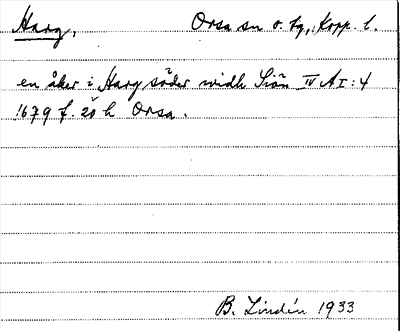 Harg, Orsa sn o. tg, Kopp. l.
en åker i Harg söder widh Siön IV A I: 4
1679 f. 20 h Orsa.
B. Lindén 1933